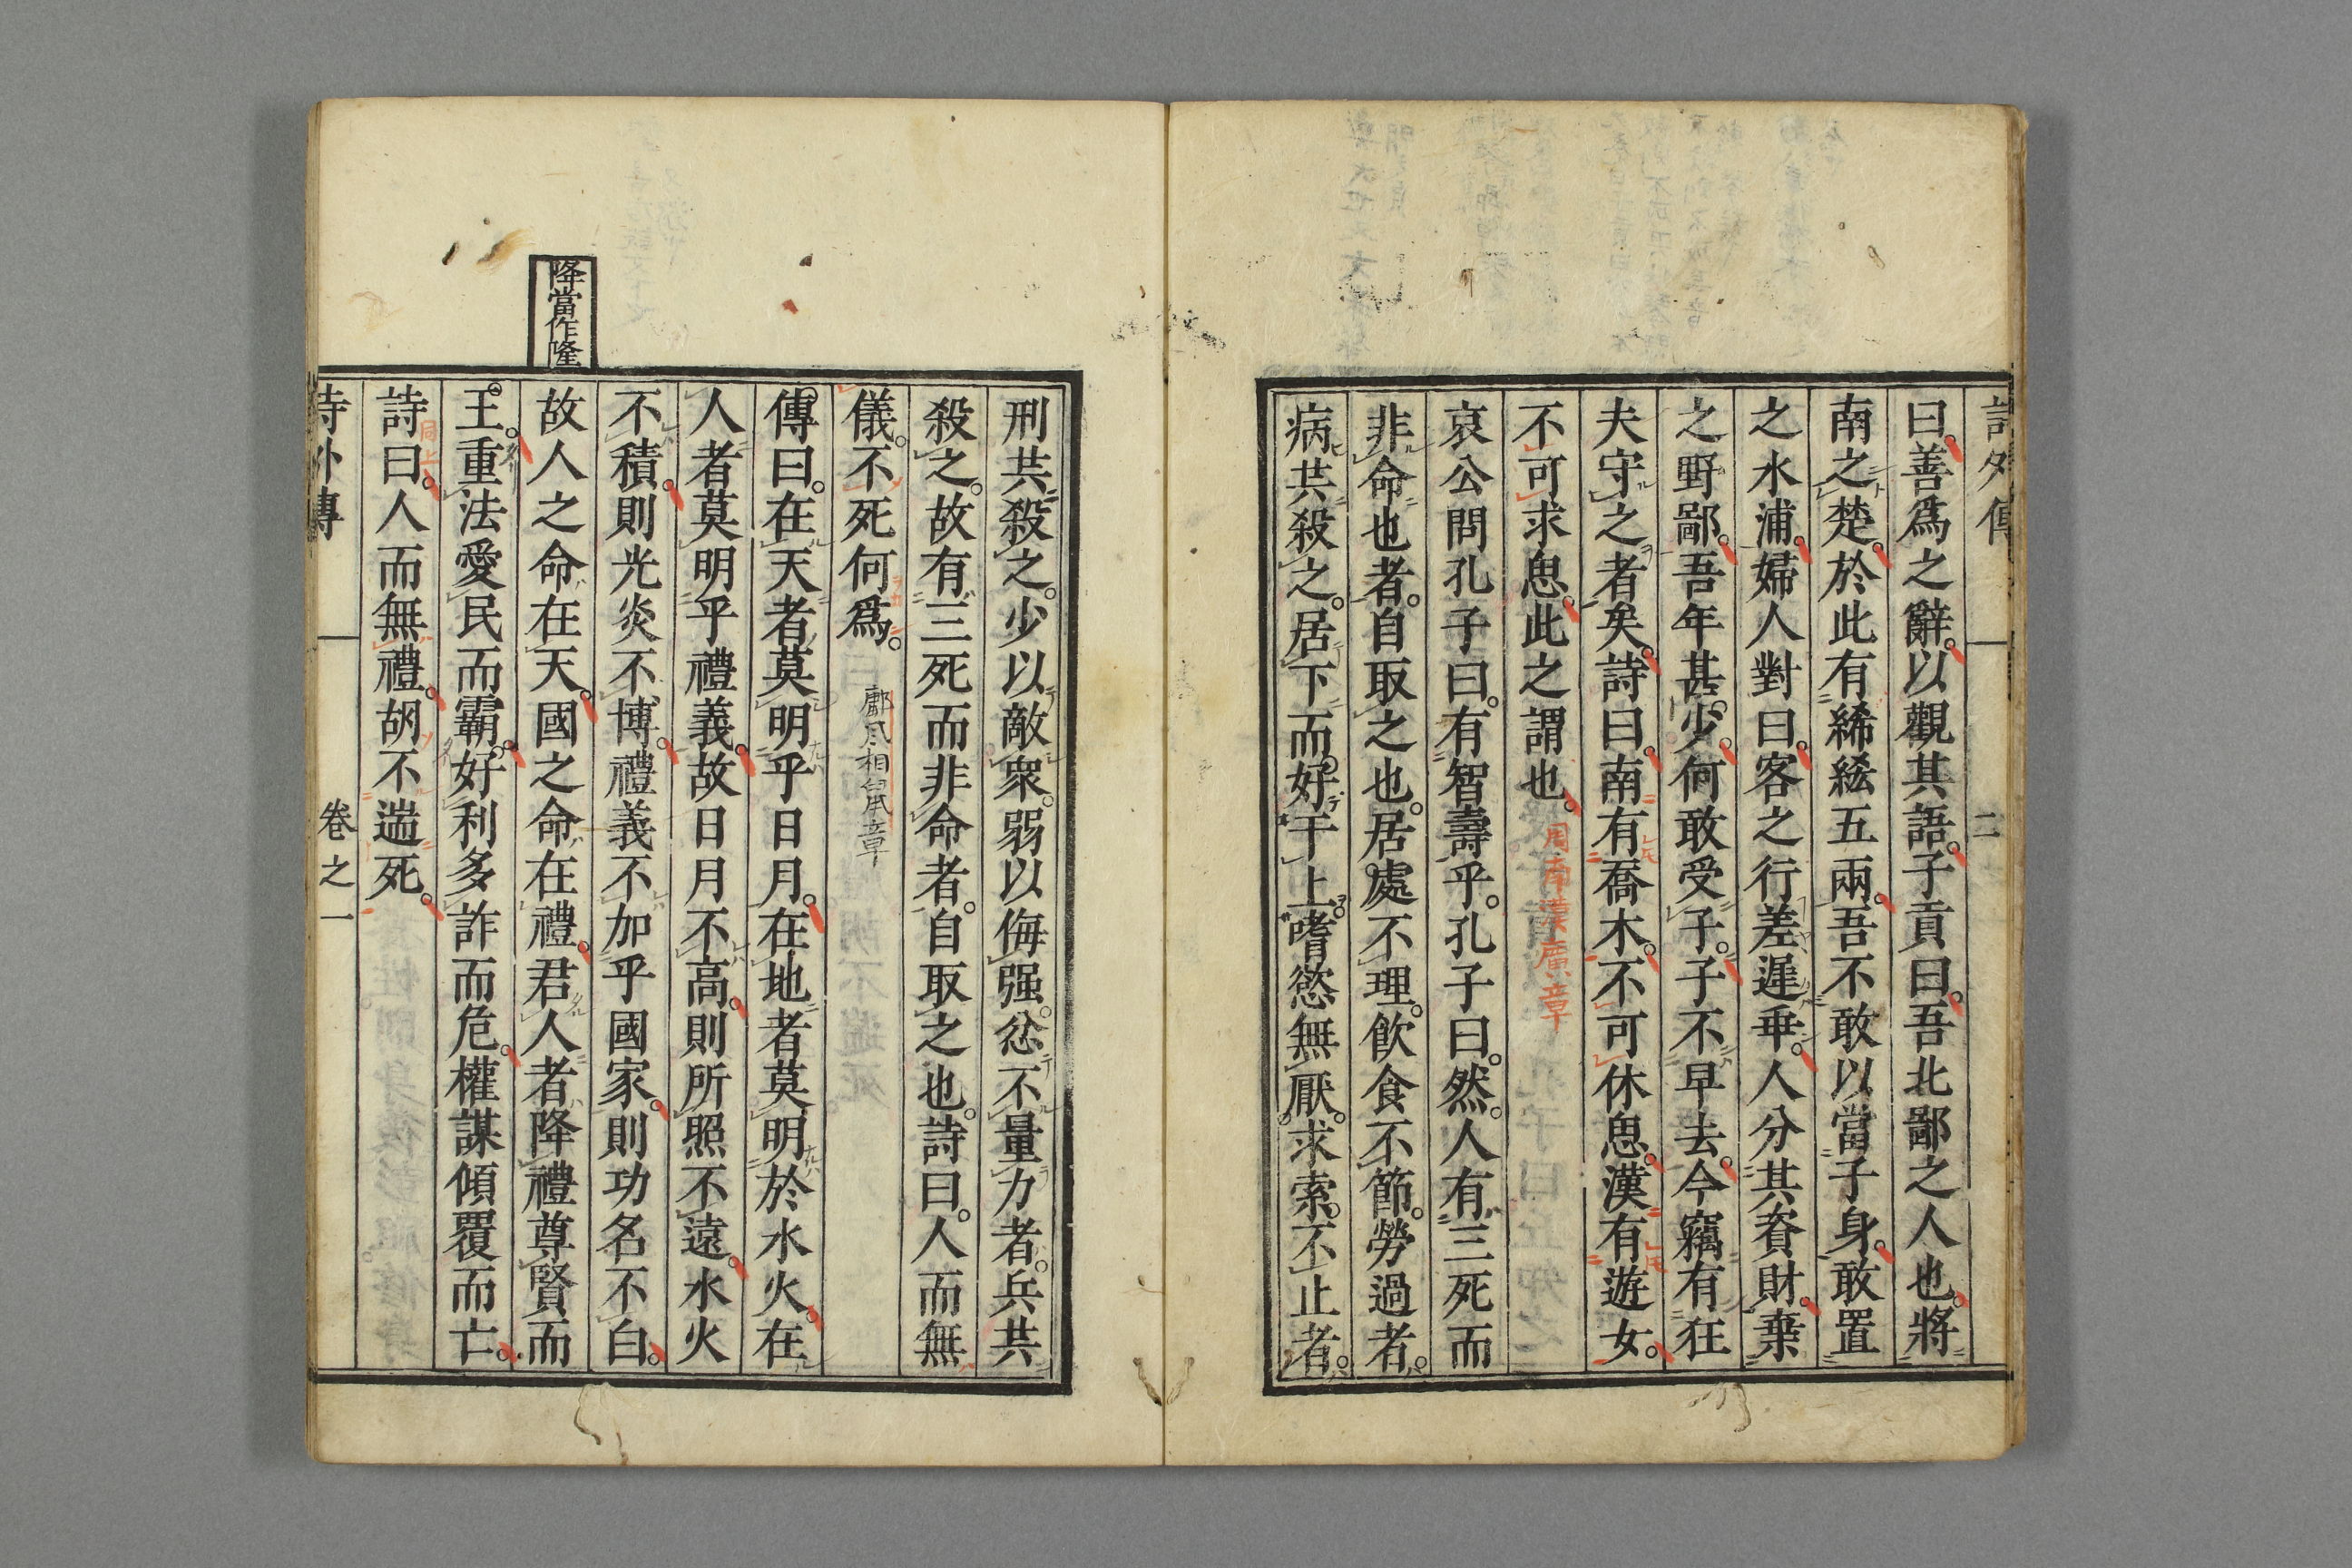 詩外傳 二
曰善爲之辭以觀其語子貢曰吾北鄙之人也將
南之楚於此有絺綌五兩吾不敢以當子身敢置
之水浦婦人對曰客之行差遲乖人分其資財棄
之野鄙吾年甚少何敢受子子不早去今竊有狂
夫守之者矣詩曰南有喬木不可休思漢有遊女
不可求思此之謂也
周南漢廣章
哀公問孔子曰有智壽乎孔子曰然人有三死而
非命也者自取之也居處不理飲食不節勞過者
病共殺之居下而好干上嗜慾無厭求索不止者
刑共殺之少以敵衆弱以侮强忿不量力者兵共
殺之故有三死而非命者自取之也詩曰人而無
儀不死何爲
鄘風相鼠章
傳曰在天者莫明乎日月在地者莫明於水火在
人者莫明乎禮義故日月不高則所照不遠水火
不積則光炎不博禮義不加乎國家則功名不白
故人之命在天國之命在禮君人者降禮尊賢而
降當作隆
王重法愛民而霸好利多詐而危權謀傾覆而亡
詩曰人而無禮胡不遄死
同上
詩外傳 卷之一